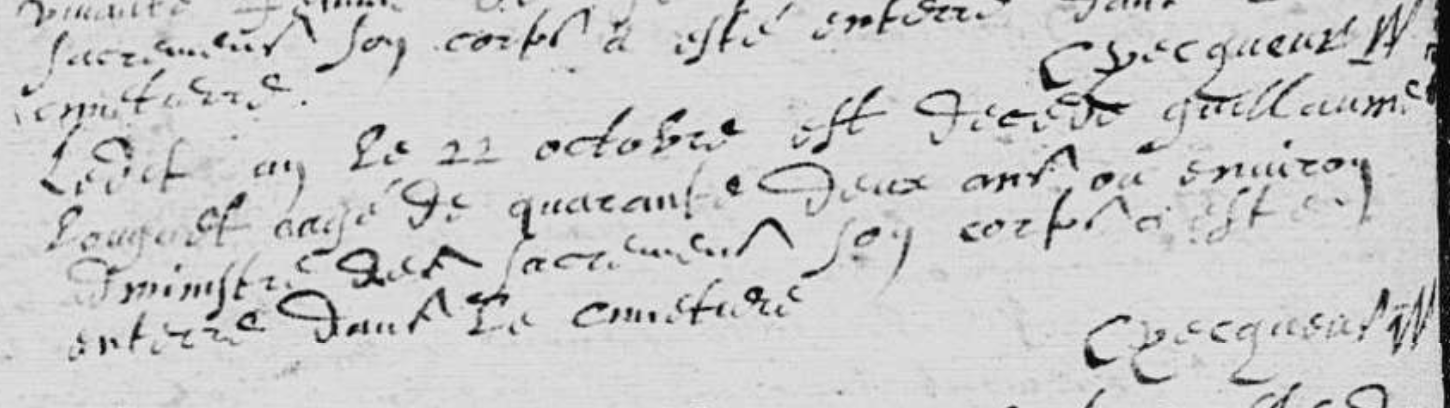 sacremens son corps a esté enterré dans
Cvecqueur
cemetierre.
Ledit an le 22 octobre est decedé guillaume
aagé de quarante deux ans ou environ
dministré des sacremens son corps a esté
enterré dans le cemetiere
Cvecqueur